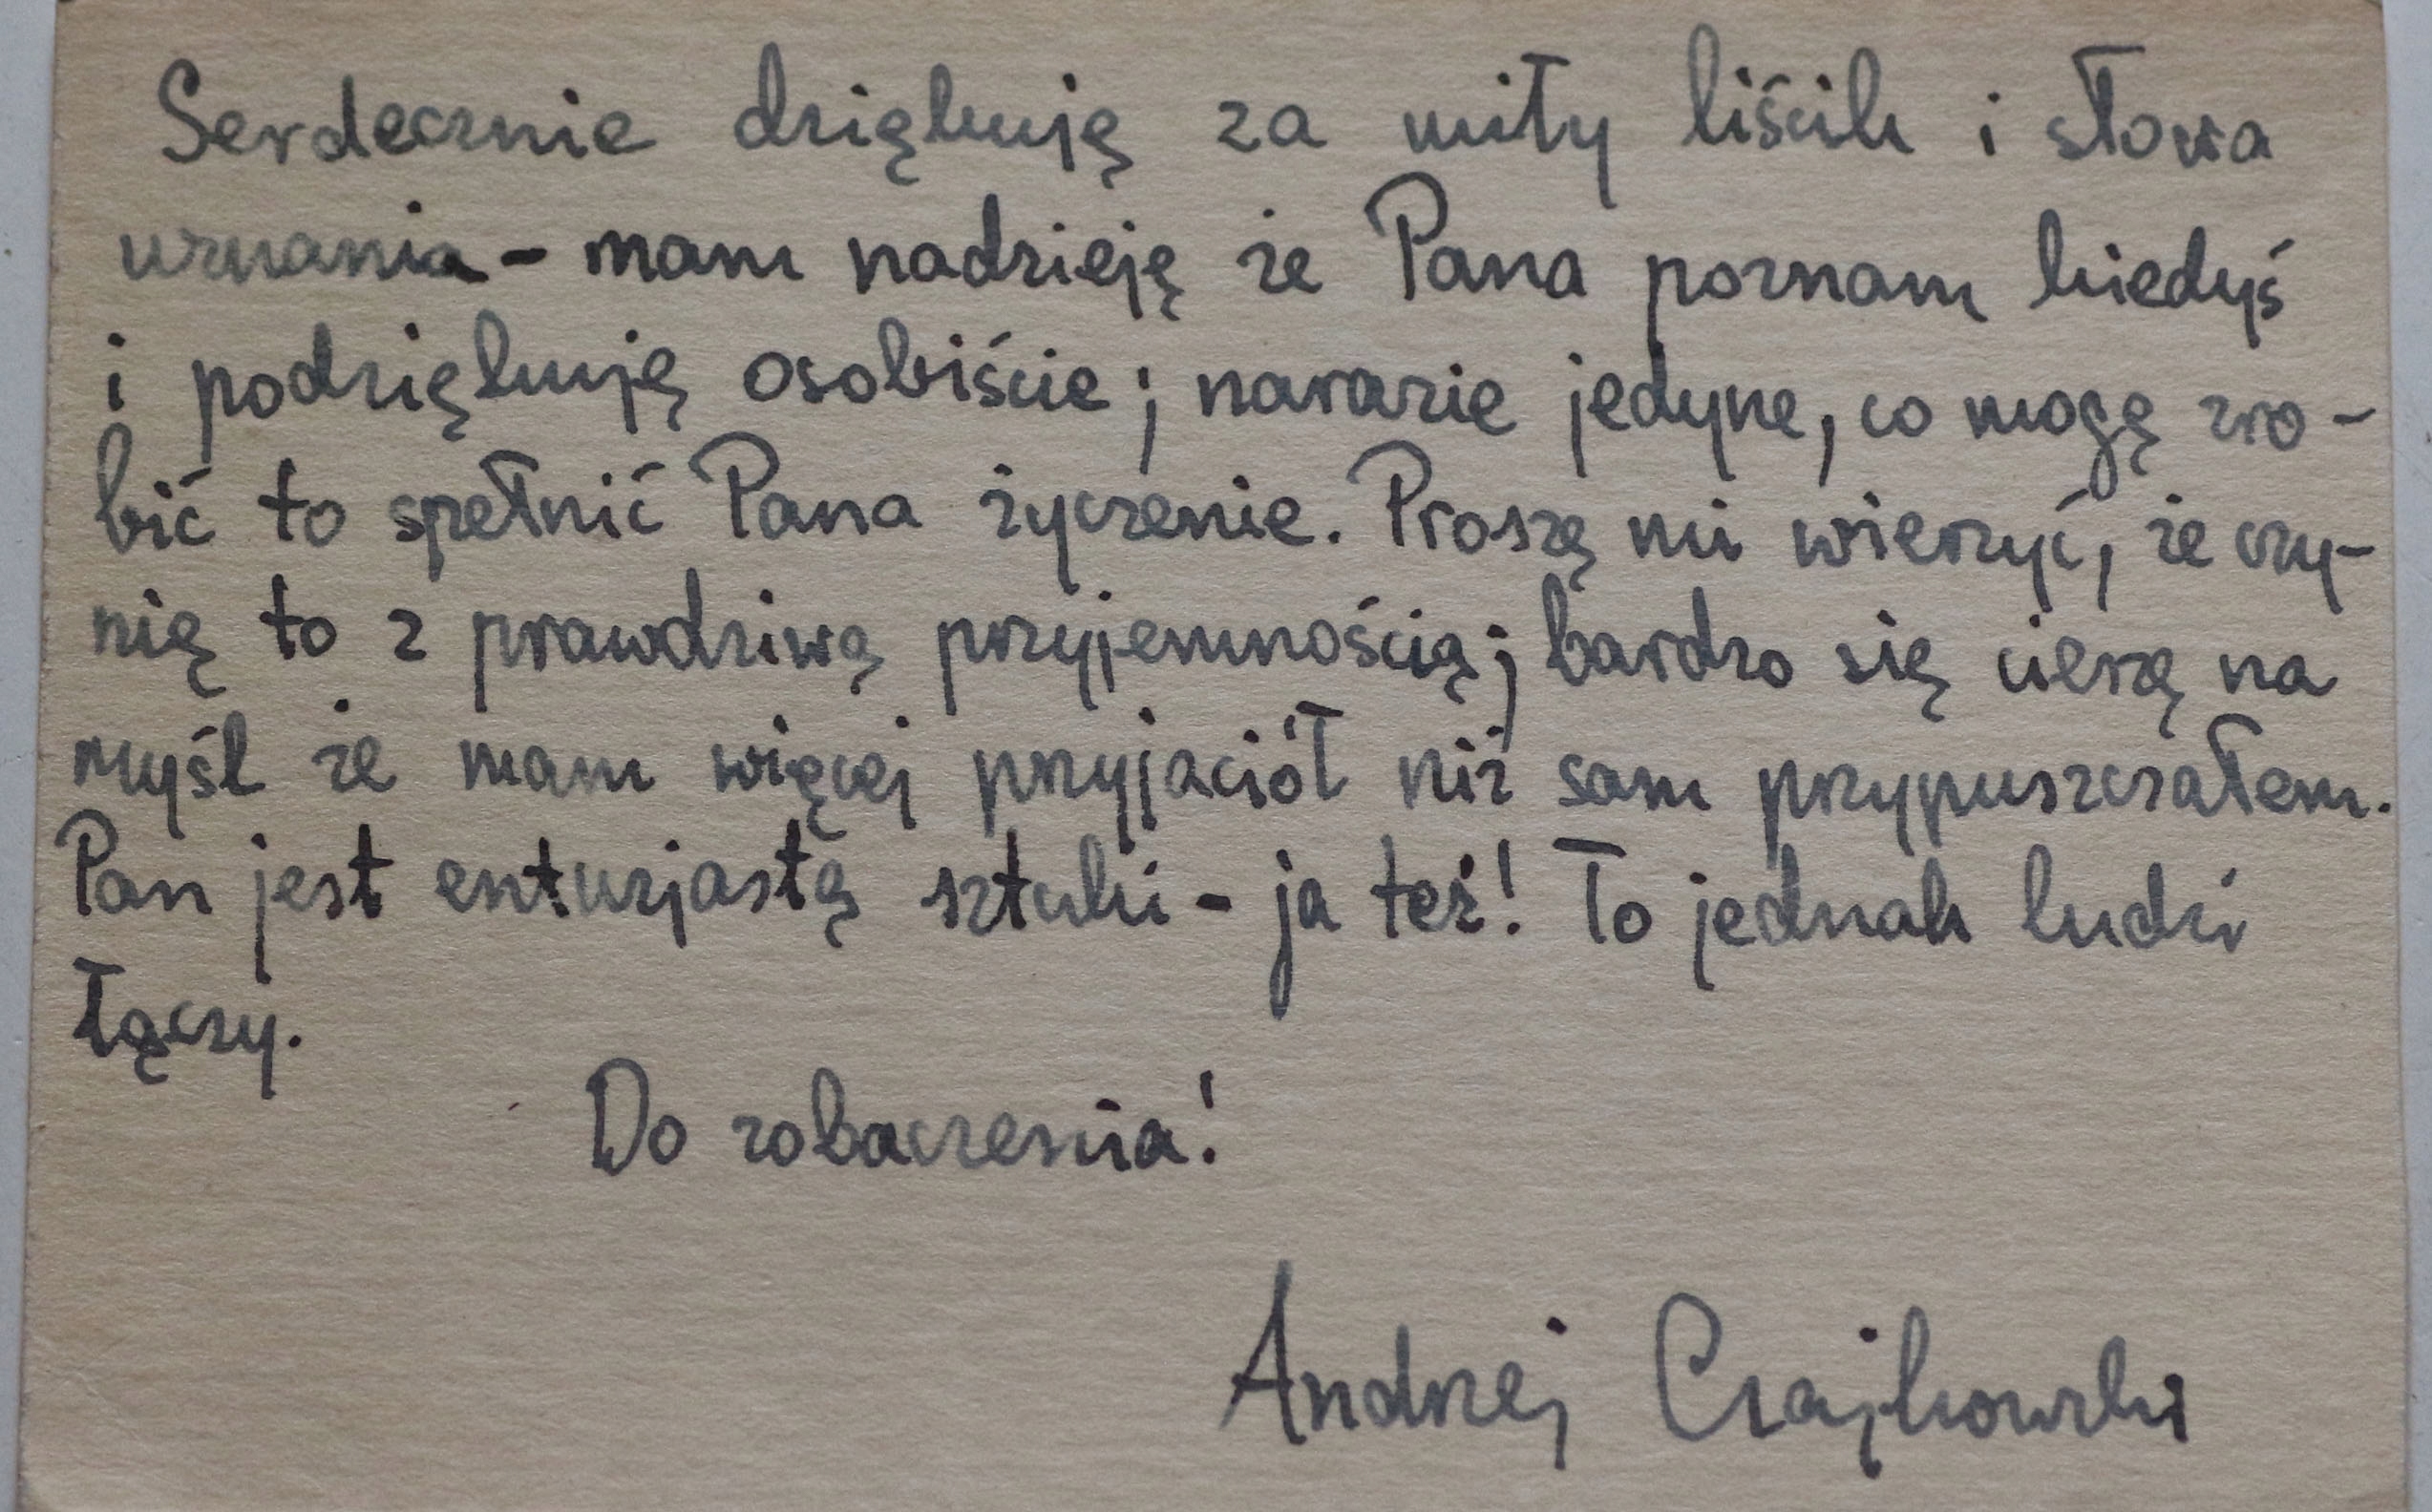 Serdecznie dziękuję za miły liścik i słowa
uznania - mam nadzieję że Pana poznam kiedyś
i podziękuję osobiście; narazie jedyne, co mogę zro-
bić to spełnić Pana życzenie. Proszę mi wierzyć, że czy-
nię to z prawdziwą przyjemnością; bardzo się cieszę na
myśl że mam więcej przyjaciół niż sam przypuszczałem.
Pan jest entuzjastą sztuki - ja też! To jednak ludzi
łączy.
Do zobaczenia!
Andrzej Czajkowski